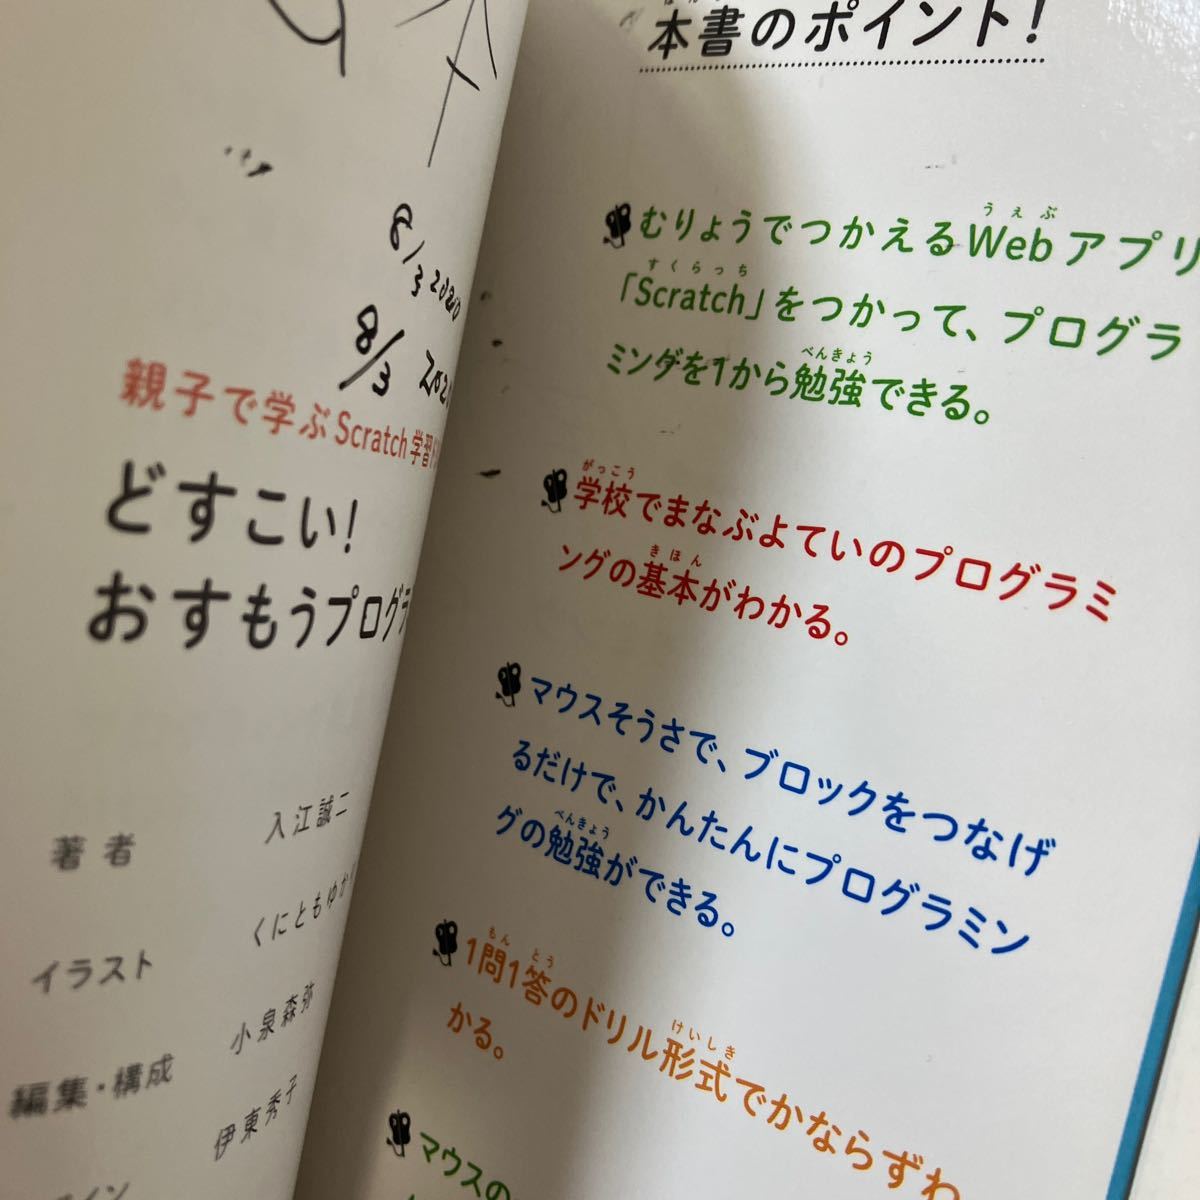 8/3 2020
8/3 202
親子で学ぶScratch学習
どすこい!
おすもうプログラ
著者
入江誠二
イラスト
くにともゆか
編集・構成
小泉森弥
伊東秀子
イン
本書のポイント!
うぇぶ
むりょうでつかえるWebアプリ
すくらっち
「Scratch」をつかって、プログラ
べんきょう
ミンダを1から勉強できる。
がっこう
学校でまなぶよていのプログラミ
きほん
ングの基本がわかる。
マウスそうさで、ブロックをつなげ
るだけで、かんたんにプログラミン
べんきょう
グの勉強ができる。
もん とう
1問1答のドリル形式でかならずわ
けいしき
かる。
マウスの